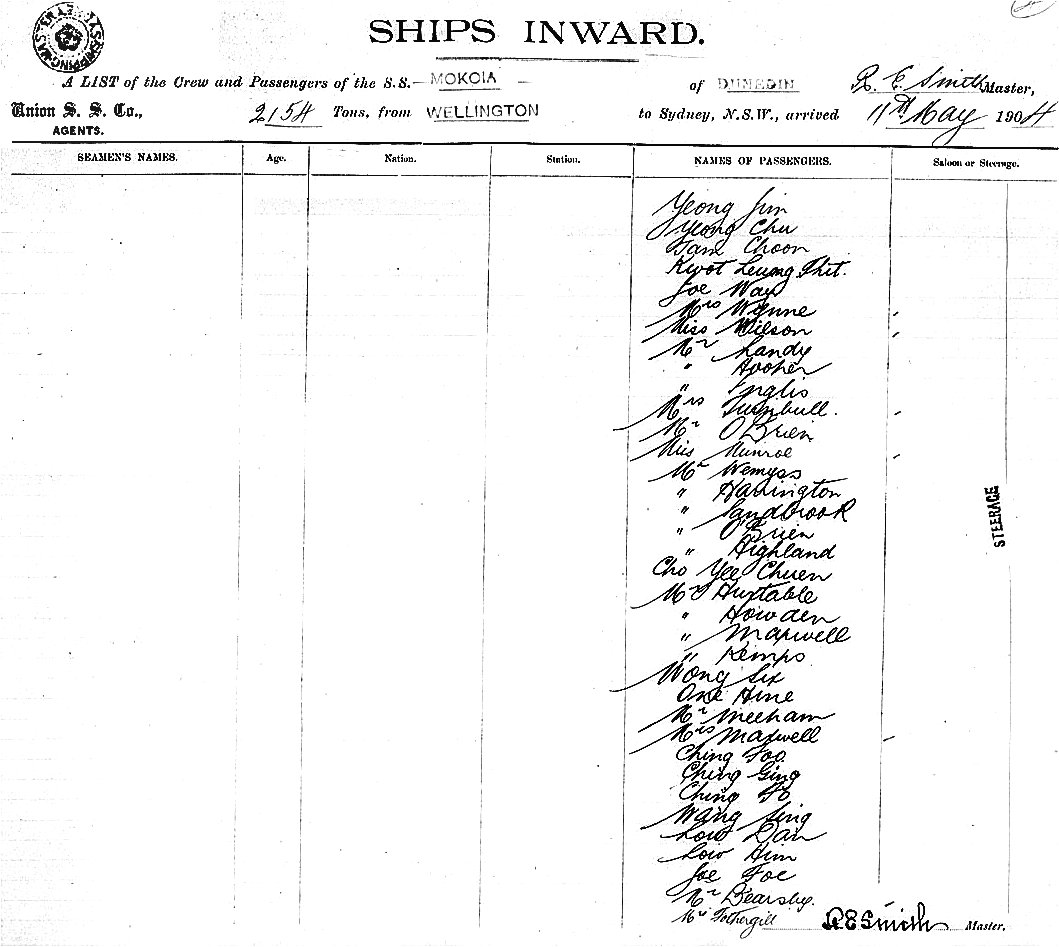 SHIPS INWARD.
A LIST of the Crew and Passengers of the S.S.— MOKOIA — of DUNEDIN R. E. Smith Master,
Union S. S. Co., 2154 Tons, from WELLINGTON to Sydney, N.S.W., arrived 11th May 1904
AGENTS.
SEAMEN'S NAMES. Age. Nation. Station. NAMES OF PASSENGERS. Saloon or Steerage.
Yeong Jim
Yeong Chu
Sam Choon
Kwot Leung Shit.
Joe Way
Mrs Wynne
Miss Wilson
Mr Landy
" Hooper
" Inglis
Mrs Turnbull.
Mr O'Brien
Miss Munroe
Mr Wemyss
" Harrington
" Sandbrook
" O'Brien
" Highland
Cho Yee Chuen
Mr Huxtable
" Howden
" Maxwell
" Kemps
STEERAGE
Wong Six
One Hine
Mr Meeham
Mrs Maxwell
Ching Too
Ching Ging
Ching To
Wang Sing
Low Dan
Low Him
Joe Foe
Mr Bearsby.
Mr Fothergill R E Smith Master.